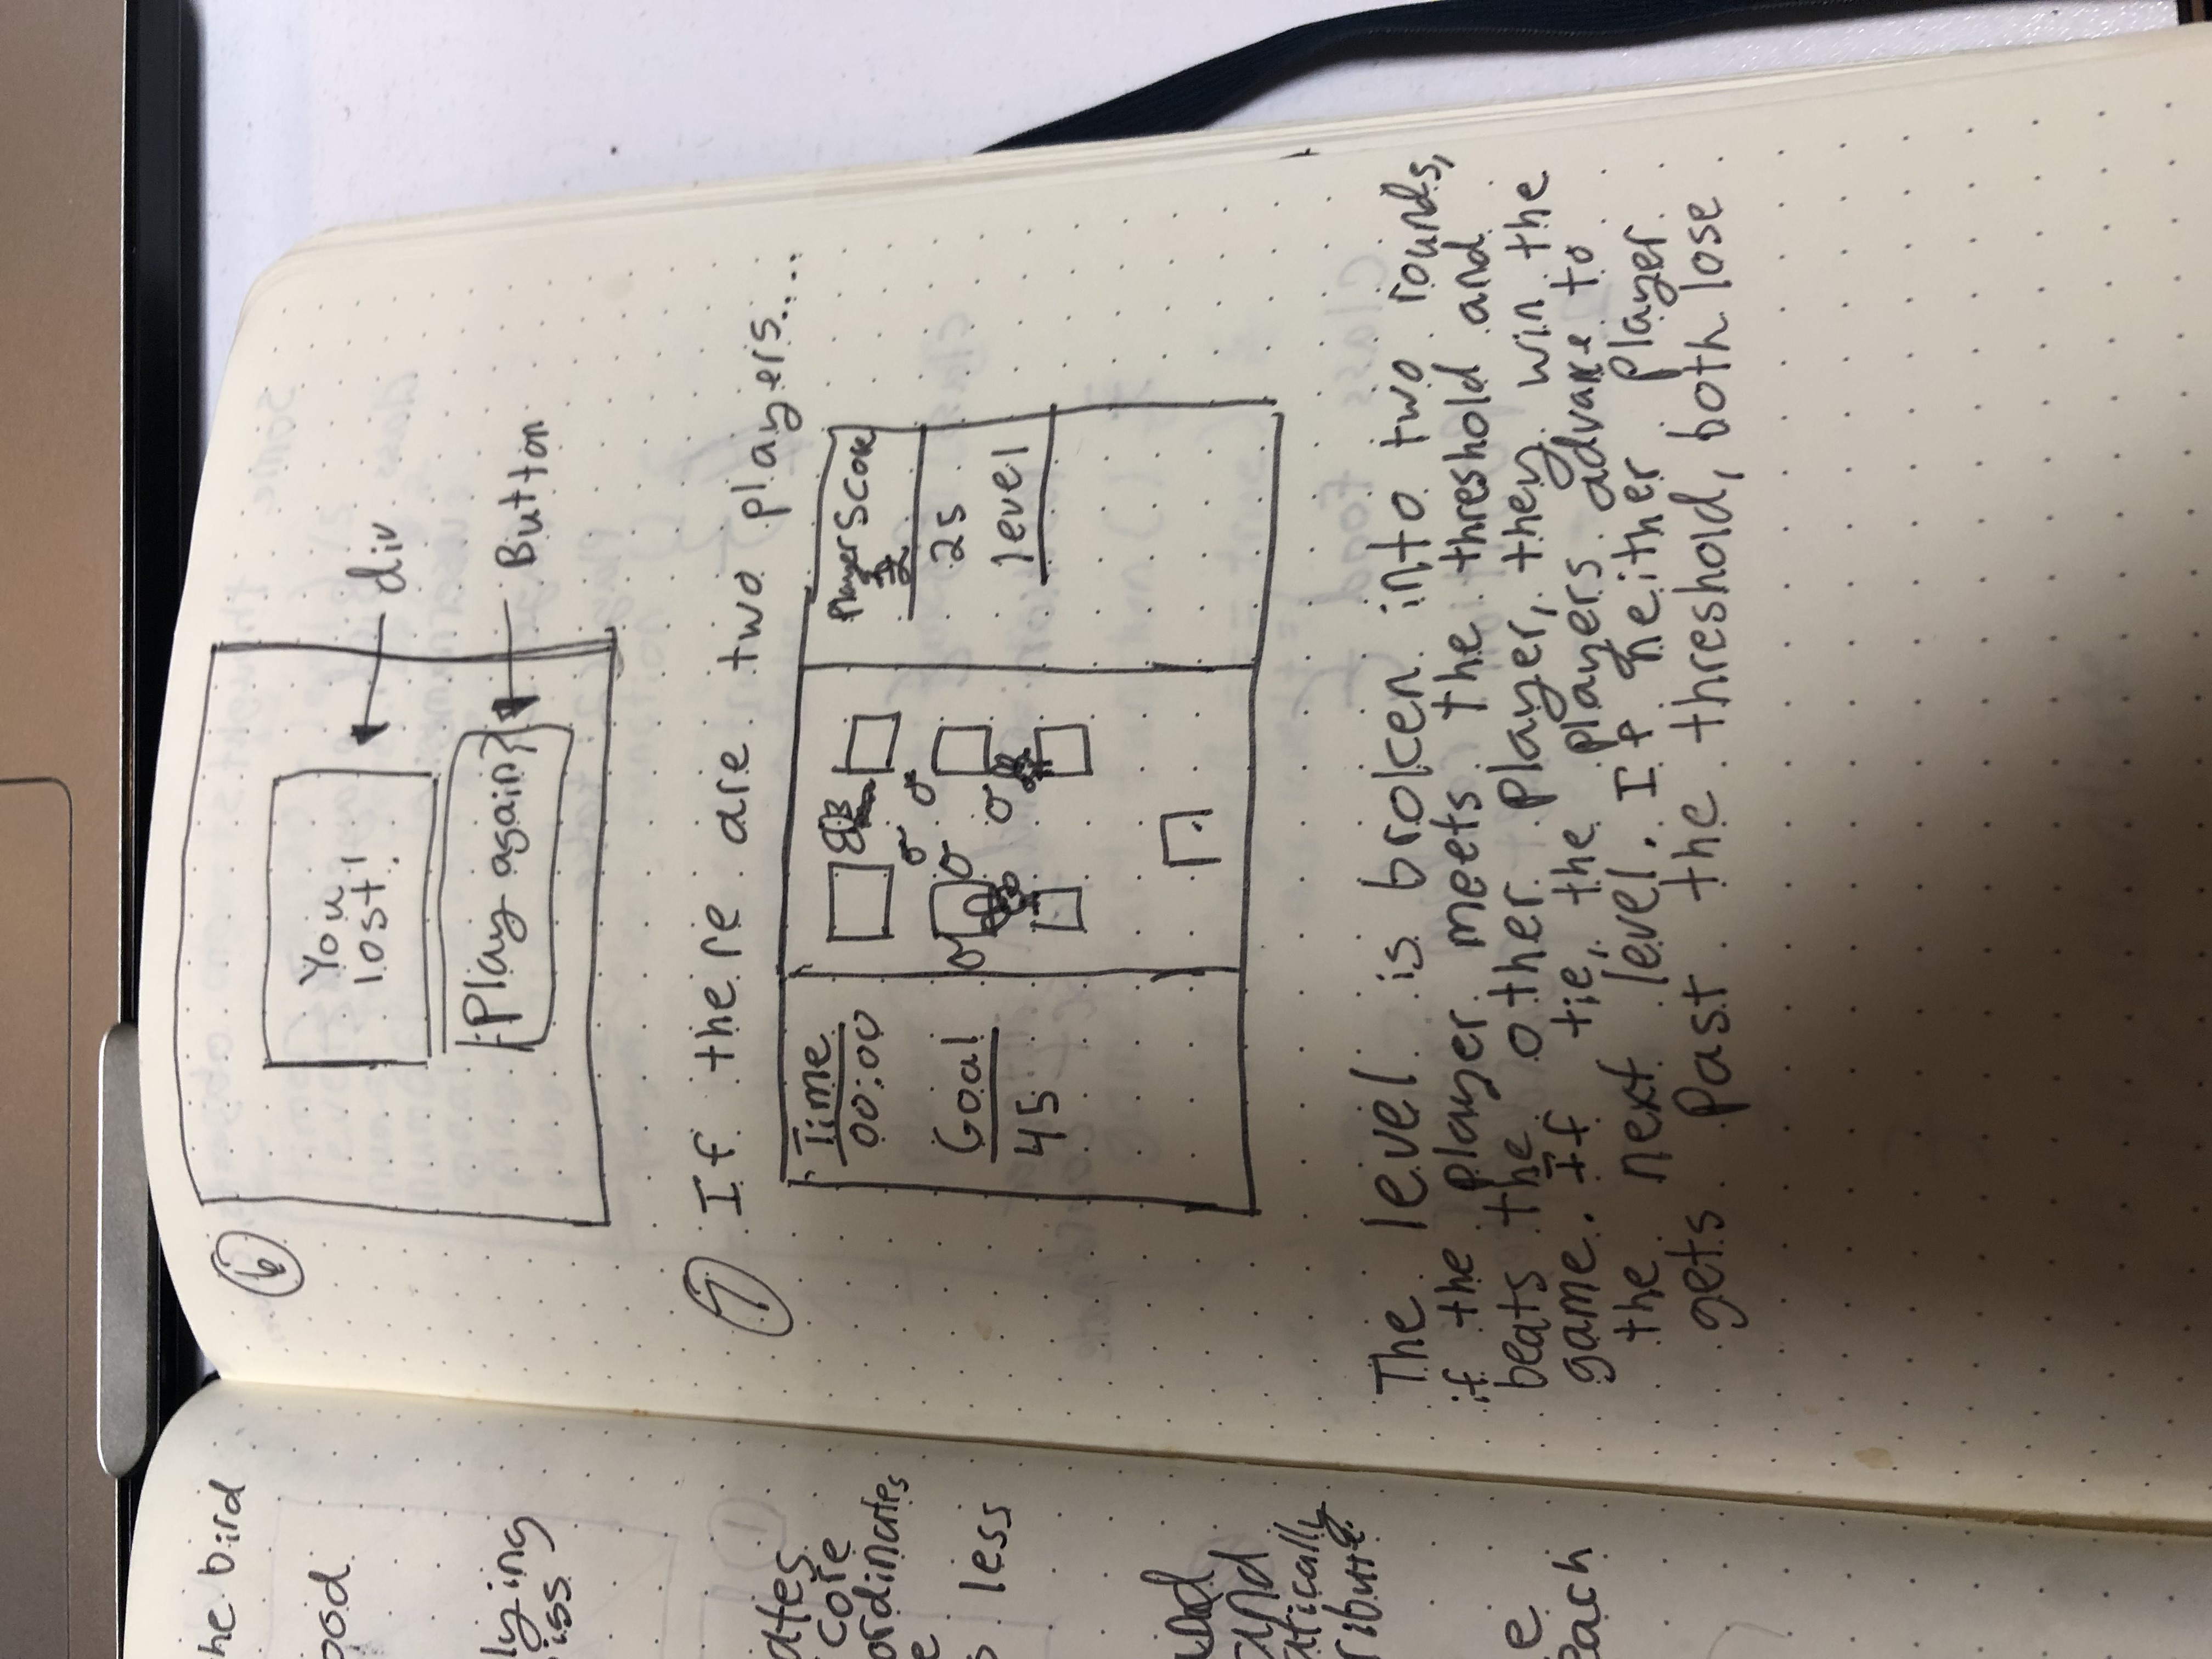 he bird
ood
lying
iss
ates
core
ordinates
e
s less
and
and
atically
ribute
e
each
6
You
lost!
div
Play again?
Button
7 If there are two players....
Time
00:00
Goal
45
Player Score
2
25
level
The level is broken into two rounds,
if the player meets the threshold and
beats the other player, they win the
game. If tie, the players advance to
the next level. If neither player
gets past the threshold, both lose